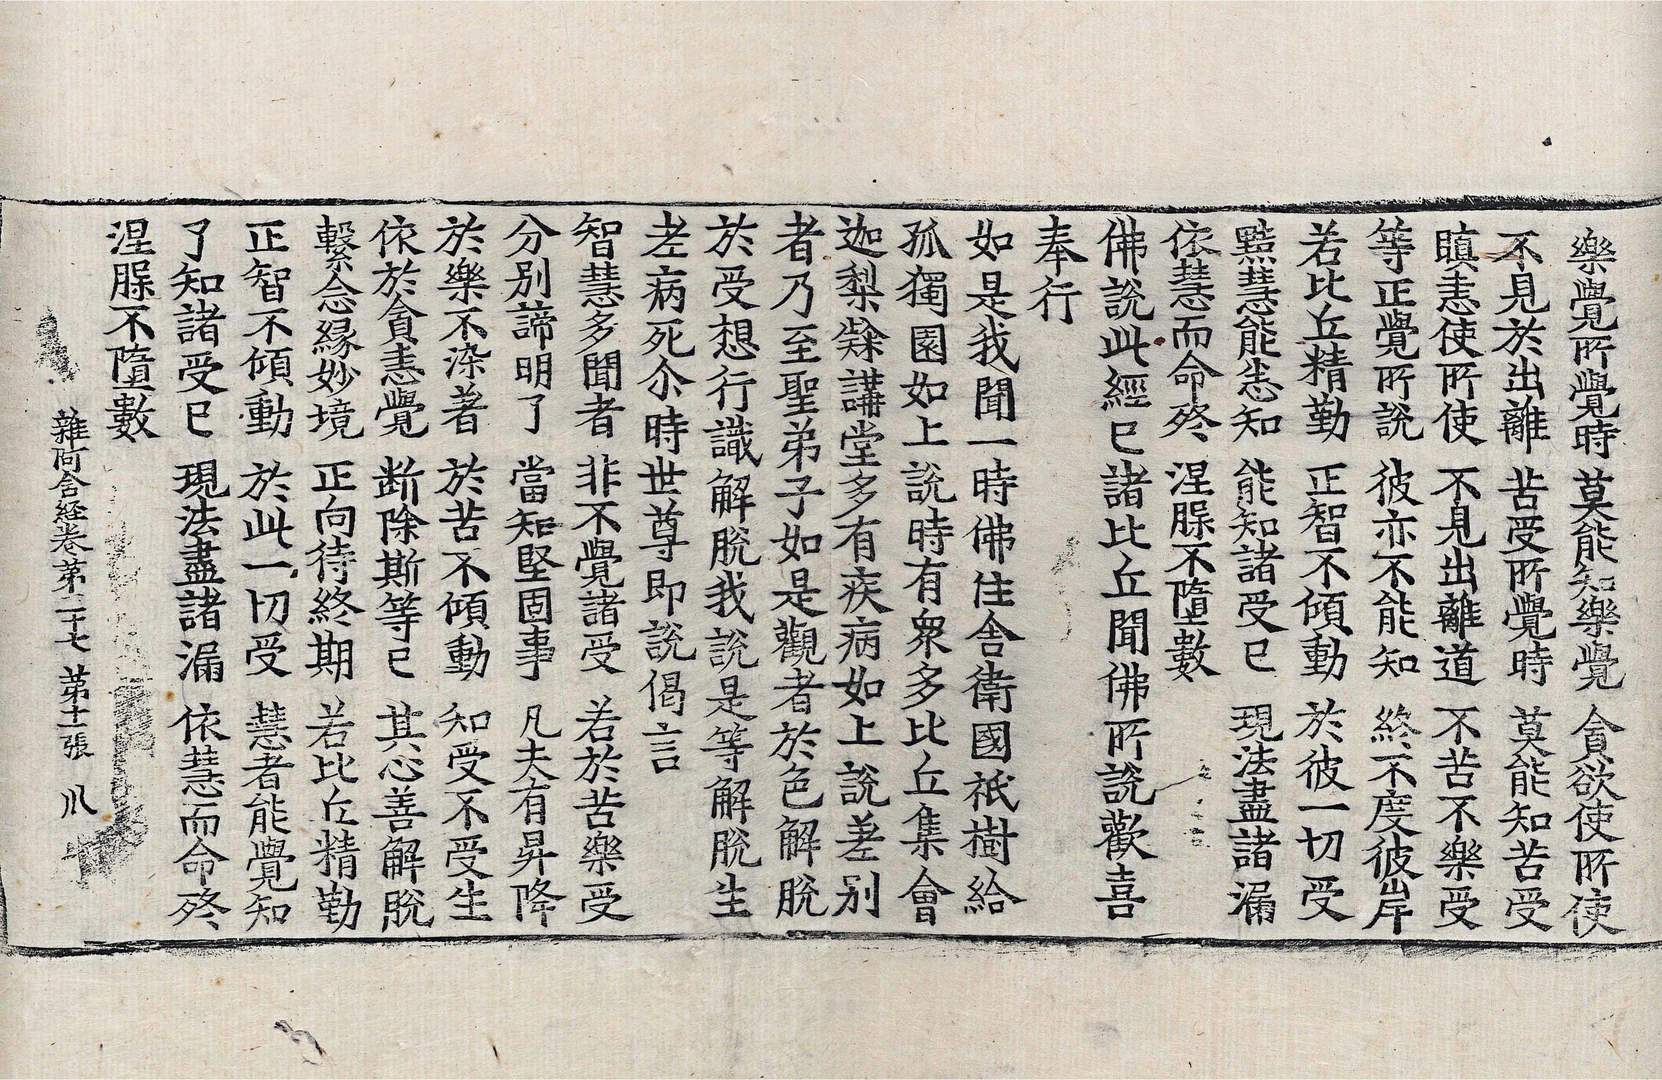 樂覺所覺時 莫能知樂覺 貪欲使所使
不見於出離 苦受所覺時 莫能知苦受
瞋恚使所使 不見出離道 不苦不樂受
等正覺所說 彼亦不能知 終不度彼岸
若比丘精勤 正智不傾動 於彼一切受
黠慧能悉知 能知諸受已 現法盡諸漏
依慧而命終 涅脲不墮數
佛說此經已諸比丘聞佛所說歡喜
奉行
如是我聞一時佛住舍衛國祇樹給
孤獨園如上說時有衆多比丘集會
迦梨隸講堂多有疾病如上說差别
者乃至聖弟子如是觀者於色解脫
於受想行識解脫我說是等解脫生
老病死尒時世尊即說偈言
智慧多聞者 非不覺諸受 若於苦樂受
分別諦明了 當知堅固事 凡夫有昇降
於樂不染著 於苦不傾動 知受不受生
依於貪恚覺 断除斯等已 其心善解脫
繫念緣妙境 正向待終期 若比丘精勤
正智不傾動 於此一切受 慧者能覺知
了知諸受已 現法盡諸漏 依慧而命終
涅脲不墮數
雜阿含経卷苐三十七 苐十一張 从